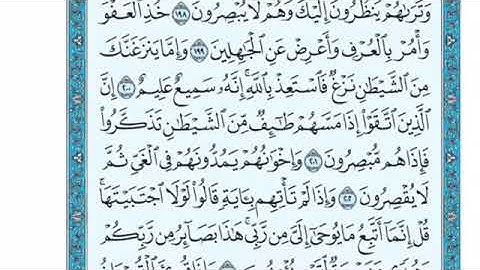 وَتَرَىٰهُمْ يَنظُرُونَ إِلَيْكَ وَهُمْ لَا يُبْصِرُونَ ١٩٨ خُذِ ٱلْعَفْوَ
وَأْمُرْ بِٱلْعُرْفِ وَأَعْرِضْ عَنِ ٱلْجَٰهِلِينَ ١٩٩ وَإِمَّا يَنزَغَنَّكَ
مِنَ ٱلشَّيْطَٰنِ نَزْغٌ فَٱسْتَعِذْ بِٱللَّهِ إِنَّهُۥ سَمِيعٌ عَلِيمٌ ٢٠٠ إِنَّ
ٱلَّذِينَ ٱتَّقَوْا۟ إِذَا مَسَّهُمْ طَٰٓئِفٌ مِّنَ ٱلشَّيْطَٰنِ تَذَكَّرُوا۟
فَإِذَا هُم مُّبْصِرُونَ ٢٠١ وَإِخْوَٰنُهُمْ يَمُدُّونَهُمْ فِى ٱلْغَىِّ ثُمَّ
لَا يُقْصِرُونَ ٢٠٢ وَإِذَا لَمْ تَأْتِهِم بِـَٔايَةٍ قَالُوا۟ لَوْلَا ٱجْتَبَيْتَهَا
قُلْ إِنَّمَآ أَتَّبِعُ مَا يُوحَىٰٓ إِلَىَّ مِن رَّبِّى هَٰذَا بَصَآئِرُ مِن رَّبِّكُمْ